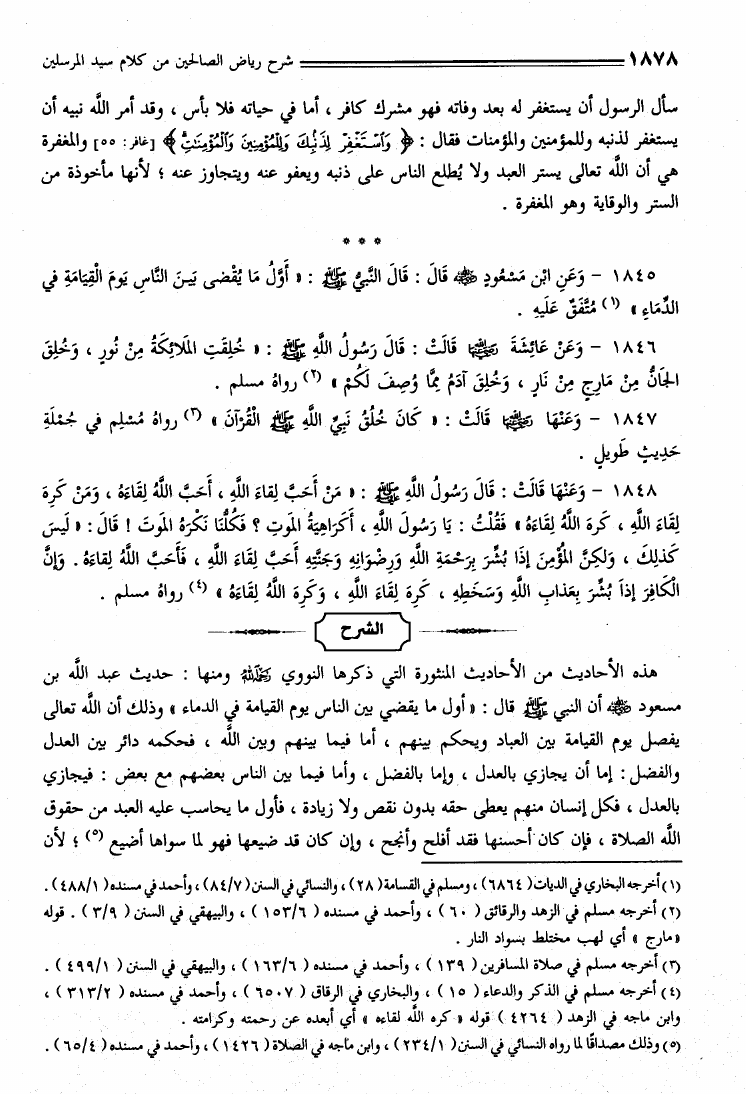 ١٨٧٨ شرح رياض الصالحين من كلام سيد المرسلين
سأل الرسول أن يستغفر له بعد وفاته فهو مشرك كافر ، أما في حياته فلا بأس ، وقد أمر الله نبيه أن
يستغفر لذنبه وللمؤمنين والمؤمنات فقال : ﴿ وَٱسْتَغْفِرْ لِذَنۢبِكَ وَلِلْمُؤْمِنِينَ وَٱلْمُؤْمِنَٰتِ ﴾ [غافر: ٥٥] والمغفرة
هي أن الله تعالى يستر العبد ولا يُطلع الناس على ذنبه ويعفو عنه ويتجاوز عنه ؛ لأنها مأخوذة من
الستر والوقاية وهو المغفرة .
* * *
١٨٤٥ - وَعَنِ ابْن مَسْعُودٍ رضي الله عنه قَالَ : قَالَ النَّبِيُّ ﷺ : « أَوَّلُ مَا يُقْضى بَيـنَ النَّاسِ يَومَ الْقِيَامَةِ في
الدِّمَاءِ » (١) مُتَّفَقٌ عَلَيهِ .
١٨٤٦ - وَعَنْ عَائِشَةَ رضي الله عنها قَالَتْ : قَالَ رَسُولُ اللَّهِ ﷺ : « خُلِقَتِ المَلَائِكَةُ مِنْ نُورٍ ، وَخُلِقَ
الجَانُّ مِنْ مَارِجٍ مِنْ نَارٍ ، وَخُلِقَ آدَمُ مِمَّا وُصِفَ لَكُمْ » (٢) رواهُ مسلم .
١٨٤٧ - وَعَنْهَا رضي الله عنها قَالَتْ : « كَانَ خُلُقُ نَبِيِّ اللَّهِ ﷺ الْقُرْآنَ » (٣) رواهُ مُسْلِم في جُمْلَةِ
حَدِيثٍ طَوِيلٍ .
١٨٤٨ - وَعَنْهَا قَالَتْ : قَالَ رَسُولُ اللَّهِ ﷺ : « مَنْ أَحَبَّ لِقاءَ اللَّهِ ، أَحَبَّ اللَّهُ لِقَاءَهُ ، وَمَنْ كَرِهَ
لِقَاءَ اللَّهِ ، كَرِهَ اللَّهُ لِقَاءَهُ » فَقُلْتُ : يَا رَسُولَ اللَّهِ ، أَكَرَاهِيَةُ المَوتِ ؟ فَكُلُّنَا نَكْرَهُ المَوتَ ! قَالَ : « لَيسَ
كَذلِكَ ، وَلكِنَّ المُؤْمِنَ إِذَا بُشِّرَ بِرَحْمَةِ اللَّهِ وَرِضْوَانِهِ وَجَنَّتِهِ أَحَبَّ لِقَاءَ اللَّهِ ، فَأَحَبَّ اللَّهُ لِقاءَهُ . وَإِنَّ
الْكَافِرَ إِذاَ بُشِّرَ بِعَذابِ اللَّهِ وَسَخَطِهِ ، كَرِهَ لِقَاءَ اللَّهِ ، وَكَرِهَ اللَّهُ لِقَاءَهُ » (٤) رواهُ مسلم .
الشرح
هذه الأحاديث من الأحاديث المنثورة التي ذكرها النووي رحمه الله ومنها : حديث عبد الله بن
مسعود رضي الله عنه أن النبي ﷺ قال : « أول ما يقضي بين الناس يوم القيامة في الدماء » وذلك أن اللَّه تعالى
يفصل يوم القيامة بين العباد ويحكم بينهم ، أما فيما بينهم وبين اللَّه ، فحكمه دائر بين العدل
والفضل : إما أن يجازي بالعدل ، وإما بالفضل ، وأما فيما بين الناس بعضهم مع بعض : فيجازي
بالعدل ، فكل إنسان منهم يعطى حقه بدون نقص ولا زيادة ، فأول ما يحاسب عليه العبد من حقوق
اللَّه الصلاة ، فإن كان أحسنها فقد أفلح وأنجح ، وإن كان قد ضيعها فهو لما سواها أضيع (٥) ؛ لأن
(١) أخرجه البخاري في الديات ( ٦٨٦٤ ) ، ومسلم في القسامة ( ٢٨ ) ، والنسائي في السنن ( ٨٤/٧ ) ، وأحمد في مسنده ( ٤٨٨/١ ) .
(٢) أخرجه مسلم في الزهد والرقائق ( ٦٠ ) ، وأحمد في مسنده ( ١٥٣/٦ ) ، والبيهقي في السنن ( ٣/٩ ) . قوله
« مارج » أي لهب مختلط بسواد النار .
(٣) أخرجه مسلم في صلاة المسافرين ( ١٣٩ ) ، وأحمد في مسنده ( ١٦٣/٦ ) ، والبيهقي في السنن ( ٤٩٩/١ ) .
(٤) أخرجه مسلم في الذكر والدعاء ( ١٥ ) ، والبخاري في الرقاق ( ٦٥٠٧ ) ، وأحمد في مسنده ( ٣١٣/٢ ) ،
وابن ماجه في الزهد ( ٤٢٦٤ ) قوله « كره اللَّه لقاءه » أي أبعده عن رحمته وكرامته .
(٥) وذلك مصداقًا لما رواه النسائي في السنن ( ٢٣٤/١ ) ، وابن ماجه في الصلاة ( ١٤٢٦ ) ، وأحمد في مسنده ( ٦٥/٤ ) .